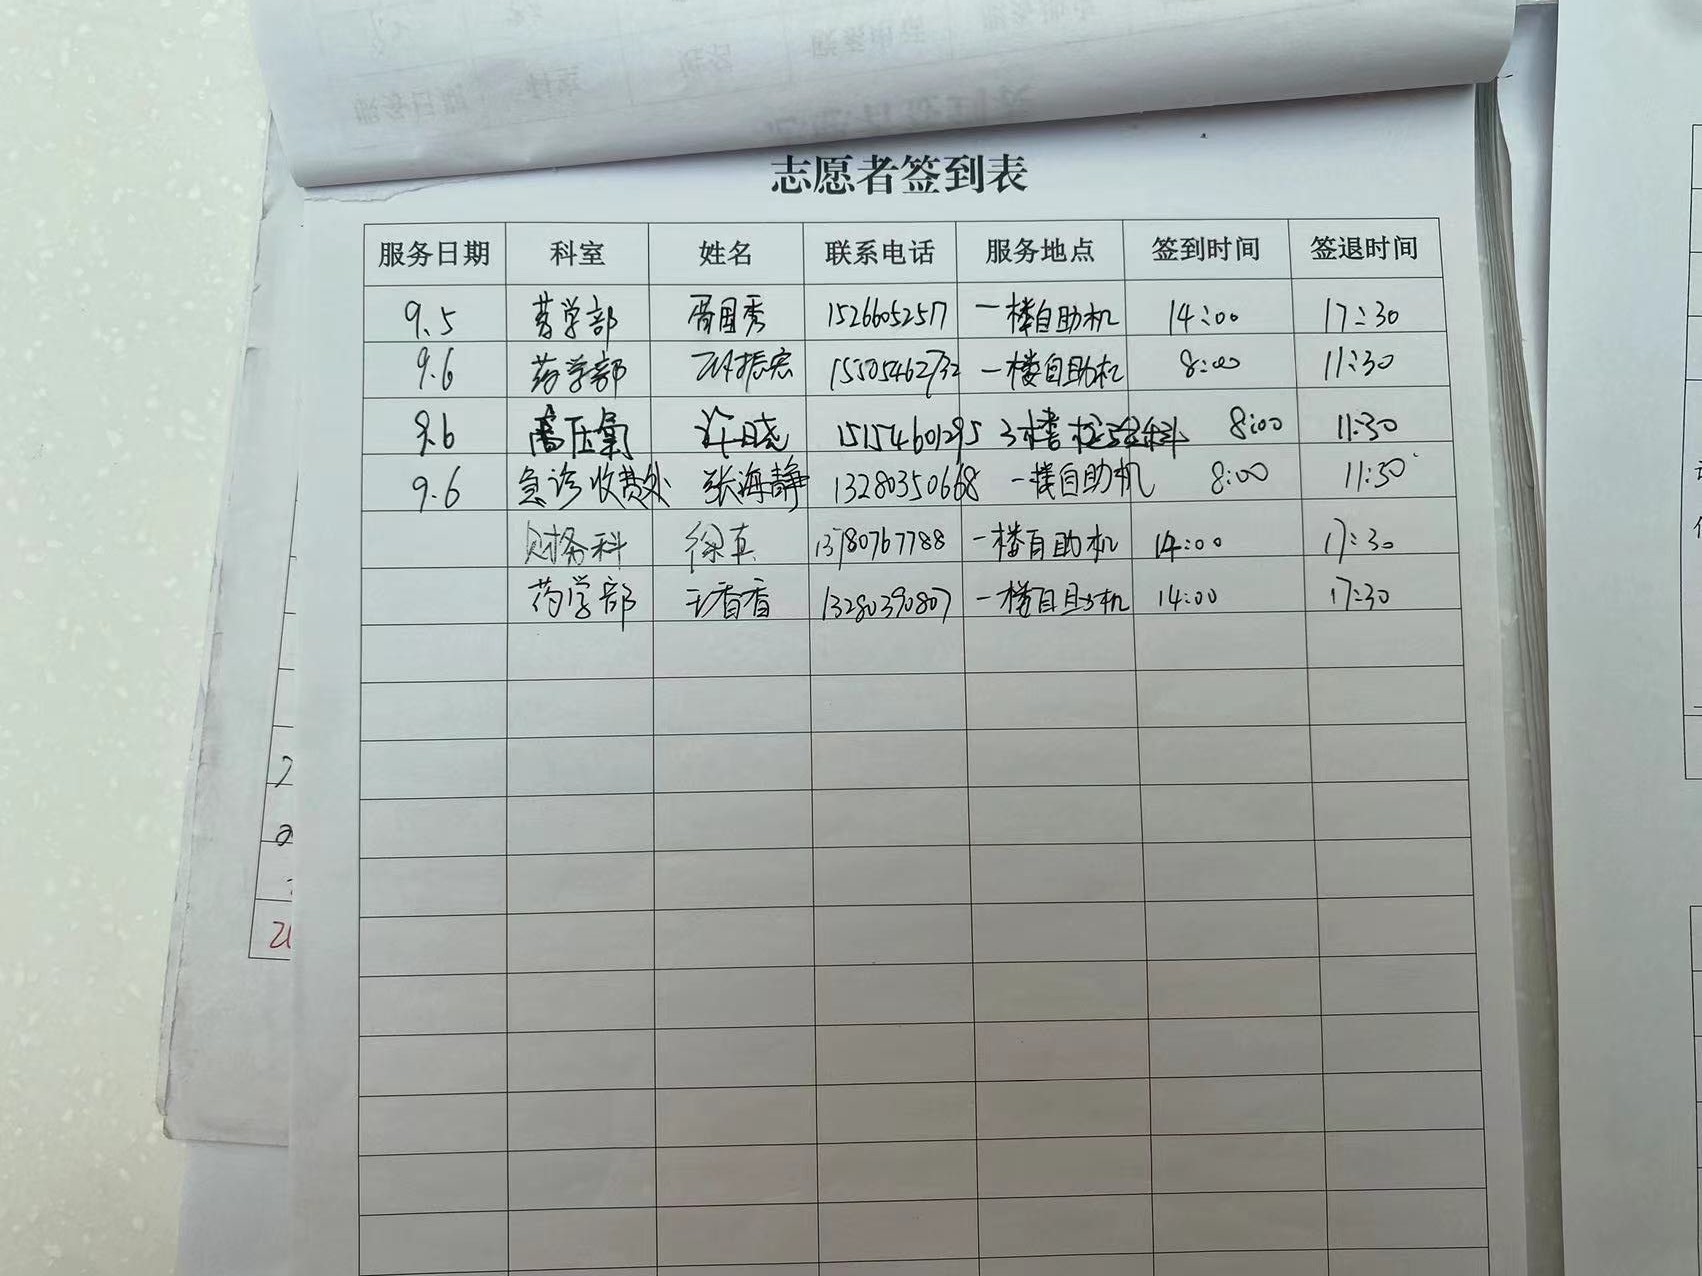 志愿者签到表
服务日期 科室 姓名 联系电话 服务地点 签到时间 签退时间
9.5 药学部 胥国秀 15266052517 一楼自助机 14:00 17:30
9.6 药学部 振宏 15505462732 一楼自助机 8:00 11:30
9.6 高压氧 许晓 15154601295 3楼检验科 8:00 11:30
9.6 急诊收费处 张海静 13280350668 一楼自助机 8:00 11:30
财务科 徐真 13780767788 一楼自助机 14:00 17:30
药学部 王香香 13280390807 一楼自助机 14:00 17:30